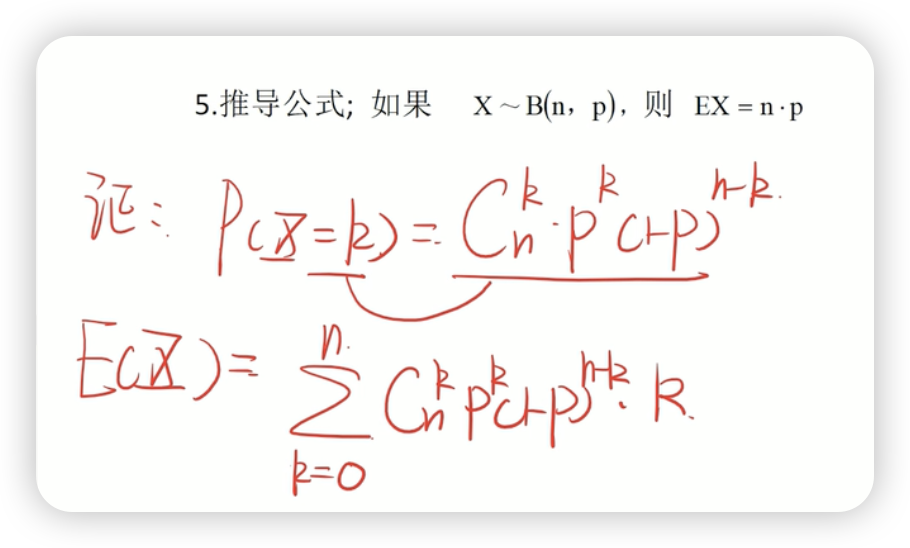 5.推导公式; 如果 X ~ B(n, p), 则 EX = n · p
证: P(X=k) = C_n^k · p^k (1-p)^{n-k}.
E(X) = \sum_{k=0}^{n} C_n^k p^k (1-p)^{n-k} · k.